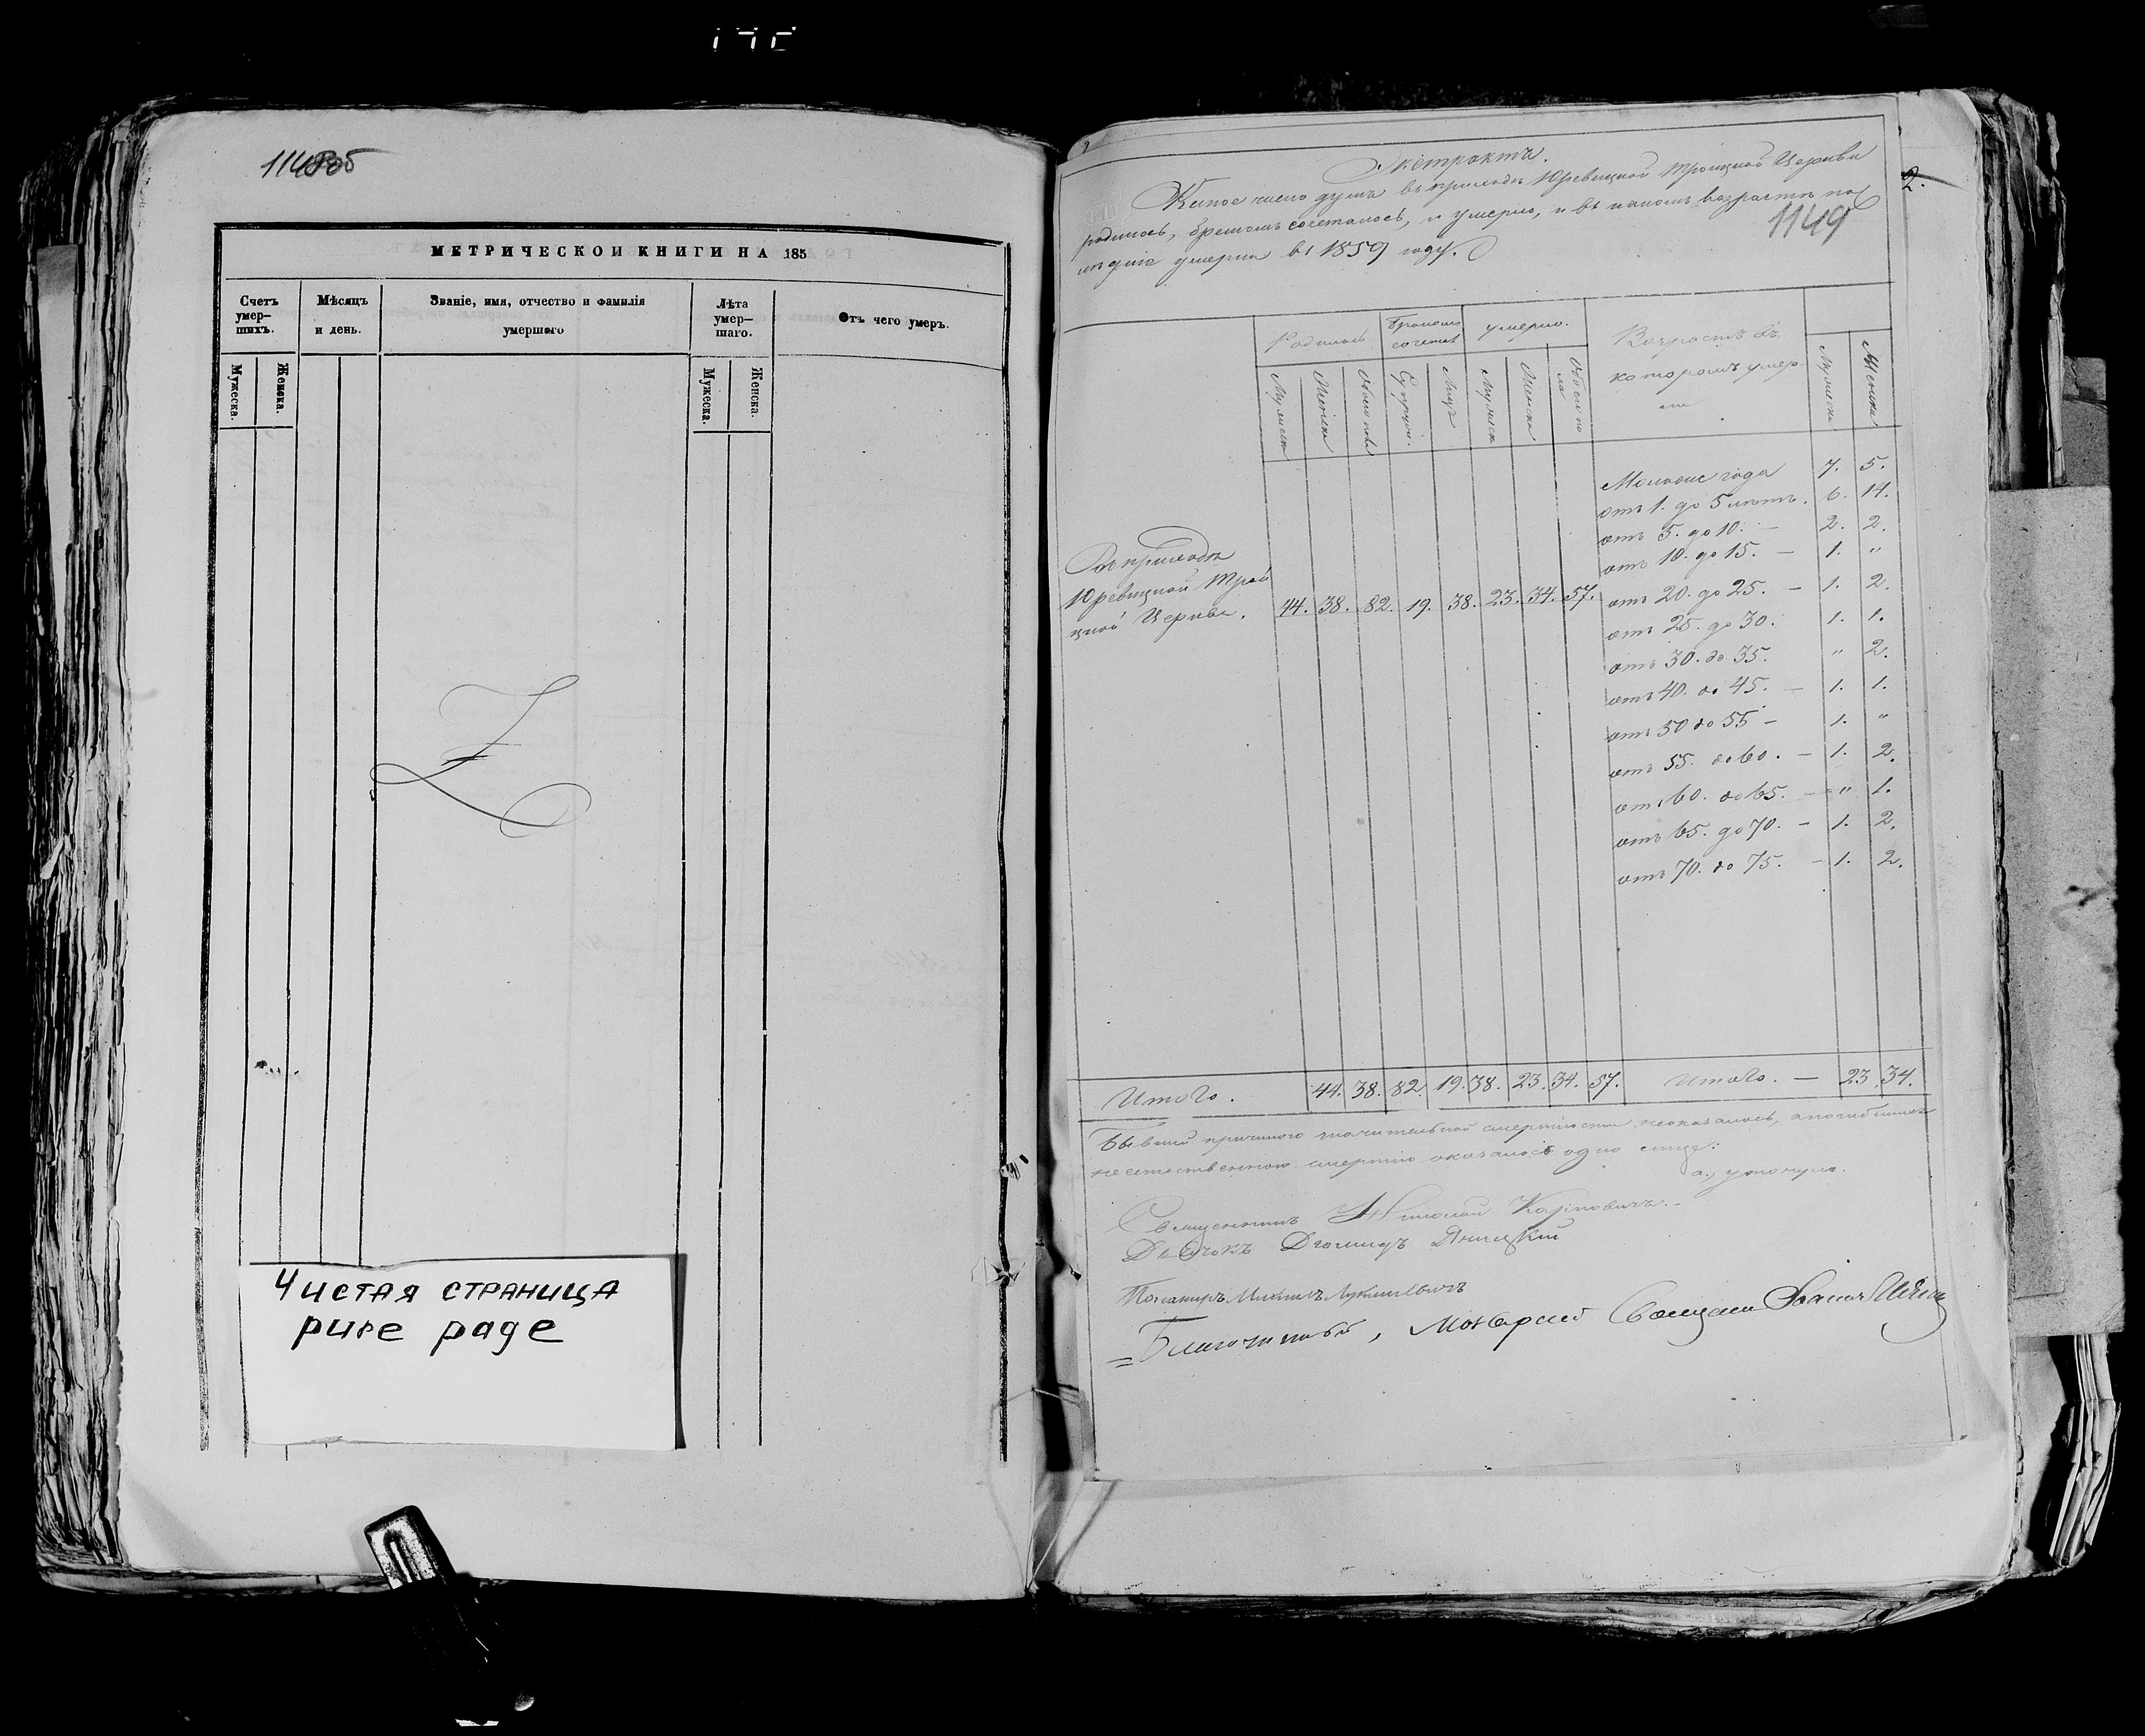 1148об
МЕТРИЧЕСКОЙ КНИГИ НА 185
Счетъ умер— шихъ.
Мѣсяцъ и день.
Званіе, имя, отчество и фамилія умершаго
Лѣта умер— шаго.
Отъ чего умеръ.
Мужеска.
Женска.
Мужеска.
Женска.
Чистая страница
pure page
2.
1149
Экстрактъ.
Какое число душъ въ приходѣ Юревицкой Троицкой Церкви
родилось, бракомъ сочеталось, и умерло, и въ какомъ возрастѣ
умерли въ 1859 году.
Родилось
Бракомъ сочетал
умерло.
Возрастъ въ которомъ умер— ли
Мужеска
Женска
Обоего пола
Супруж.
Лицъ
Мужеска
Женска
Обоего по ла
Мужеска
Женска
Моложе года 7. 5.
отъ 1. до 5 лѣтъ. 6. 14.
отъ 5. до 10. — 2. 2.
отъ 10. до 15. — 1. "
По приходу
Юревицкой Трои
цкой Церкви. 44. 38. 82. 19. 38. 23. 34. 57. отъ 20. до 25. — 1. 2.
отъ 25. до 30. 1. 1.
отъ 30. до 35. " 2.
отъ 40. до 45. — 1. 1.
отъ 50 до 55 — 1. "
отъ 55. до 60. — 1. 2.
отъ 60. до 65. — " 1.
отъ 65. до 70. — 1. 2.
отъ 70. до 75. — 1. 2.
Итого. 44. 38. 82. 19. 38. 23. 34. 57. Итого. — 23. 34.
причиною значительной смертности неоказалось, а погибшихъ
неестественною смертію оказалось одно лице:
а., утонуло.
Священникъ Николай Карповичъ.
Дьячокъ Діомидъ Яницкій
Пономарь Михаилъ
Благочинный, Мозырскій Священ